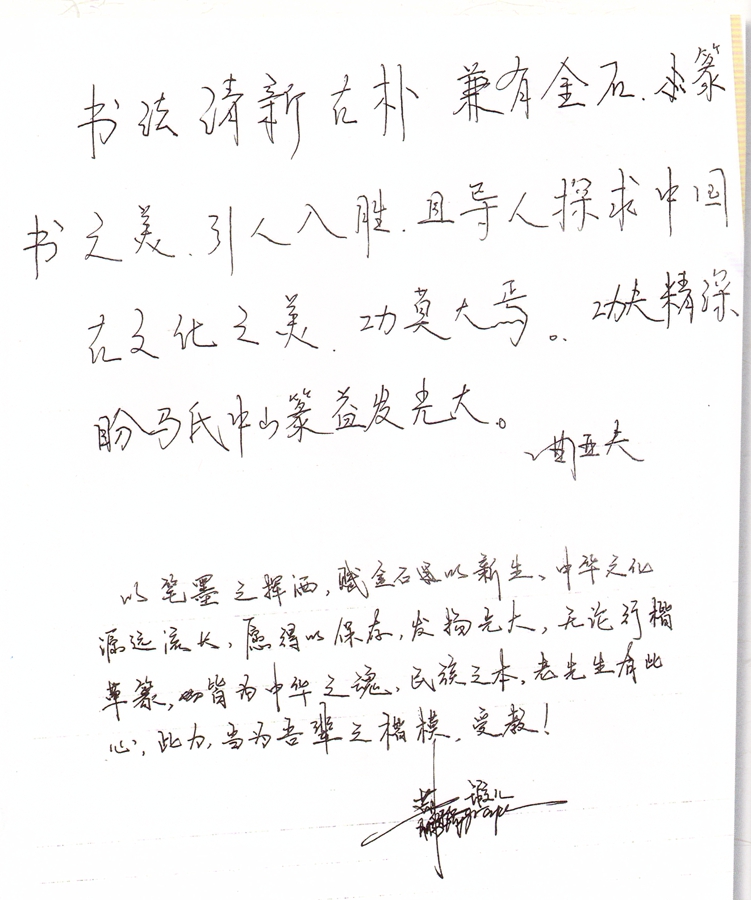 书法清新古朴 兼有金石、求篆
书之美、引人入胜、且导人探求中国
古文化之美、功莫大焉。功夫精深
盼马氏中山篆益发光大。
曲亚夫
以笔墨之挥洒,赋金石以新生、中华文化
源远流长,愿得以保存,发扬光大,无论行楷
草篆,皆为中华之魂、民族之本,老先生有此
心,此力,当为吾辈之楷模,受教!